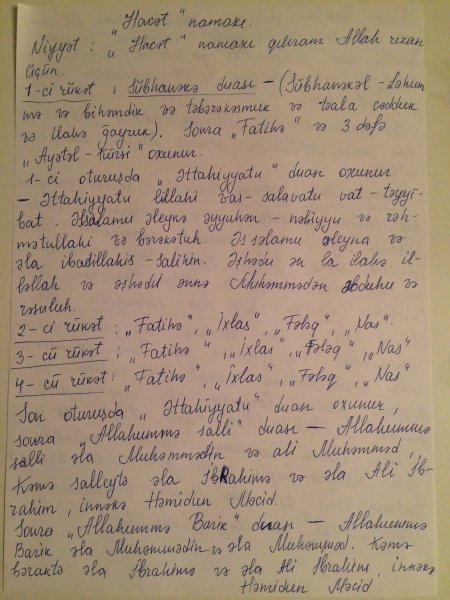 „Hacət" namazı.
Niyyət : „Hacət" namazı qılıram Allah rızası
üçün.
1-ci rükət : Sübhanəkə duası – (Sübhanəkəl-Ləhum
mə və bihəmdik və təbərəkəsmuk və təala cədduk
və ilahə ğayruk). Sonra „Fatihə" və 3 dəfə
„Ayətəl-kürsi" oxunur.
1-ci oturuşda „Əttahiyyatu" duası oxunur
– Əttahiyyatu lillahi vas-salavatu vat-təyyi-
bat. Əssəlamu əleykə əyyuhən-nəbiyyu və rəh-
mətullahi və bərəkətuh. Əs səlamu əleyna və
əla ibadillahis-salihin. Əşhədu ən la ilahə il-
ləllah və əşhədu ənnə Muhəmmədən əbduhu və
rəsuluh.
2-ci rükət : „Fatihə", „İxlas", „Fələq", „Nas".
3-cü rükət : „Fatihə", „İxlas", „Fələq", „Nas"
4-cü rükət : „Fatihə", „İxlas", „Fələq", „Nas"
Son oturuşda „Əttahiyyatu" duası oxunur,
sonra „Allahummə salli" duası – Allahummə
salli əla Muhəmmədin və ali Muhəmməd,
Kəmə salleytə əla İbRahimə və əla Ali İb-
rahim, innəkə Həmidun Məcid.
Sonra „Allahummə Barik" duası – Allahummə
Barik əla Muhəmmədin və əla Muhəmməd. Kəmə
bərəktə əla İbrahimə və əla Ali İbrahim, innəkə
Həmidun Məcid